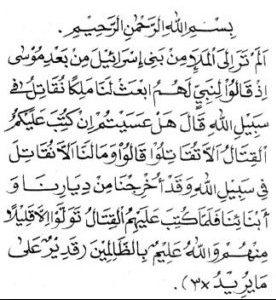 بِسْمِ اللهِ الرَّحْمٰنِ الرَّحِيْمِ
اَلَمْ تَرَ اِلَى الْمَلَاِ مِنْ بَنِي اِسْرَائِيْلَ مِنْ بَعْدِ مُوْسٰى
اِذْ قَالُوْا لِنَبِيٍّ لَهُمُ ابْعَثْ لَنَا مَلِكًا نُقَاتِلْ فِى
سَبِيْلِ اللهِ قَالَ هَلْ عَسَيْتُمْ اِنْ كُتِبَ عَلَيْكُمُ
الْقِتَالُ اَلَّا تُقَاتِلُوْا قَالُوْا وَمَالَنَا اَلَّا نُقَاتِلَ
فِى سَبِيْلِ اللهِ وَقَدْ اُخْرِجْنَا مِنْ دِيَارِنَا وَ
اَبْنَائِنَا فَلَمَّا كُتِبَ عَلَيْهِمُ الْقِتَالُ تَوَلَّوْا اِلَّا قَلِيْلًا
مِنْهُمْ وَاللهُ عَلِيْمٌ بِالظَّالِمِيْنَ (قَدِيْرٌ عَلٰى
مَا يُرِيْدُ ×٣).